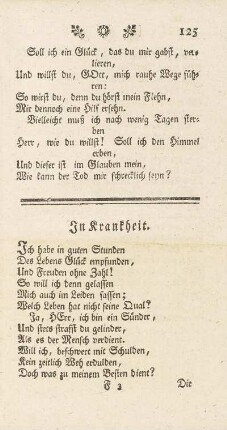 125
Soll ich ein Glück, das du mir gabst, ver-
lieren,
Und willst du, GOtt, mich rauhe Wege füh-
ren:
So wirst du, denn du hörst mein Flehn,
Mir dennoch eine Hilf ersehn.
Vielleicht muß ich nach wenig Tagen ster-
ben
Herr, wie du willst! Soll ich den Himmel
erben,
Und dieser ist im Glauben mein,
Wie kann der Tod mir schrecklich seyn?
In Krankheit.
Ich habe in guten Stunden
Des Lebens Glück empfunden,
Und Freuden ohne Zahl!
So will ich denn gelassen
Mich auch im Leiden fassen;
Welch Leben hat nicht seine Qual?
Ja, HErr, ich bin ein Sünder,
Und stets strafst du gelinder,
Als es der Mensch verdient.
Will ich, beschwert mit Schulden,
Kein zeitlich Weh erdulden,
Doch was zu meinem Besten dient?
F 3 Die